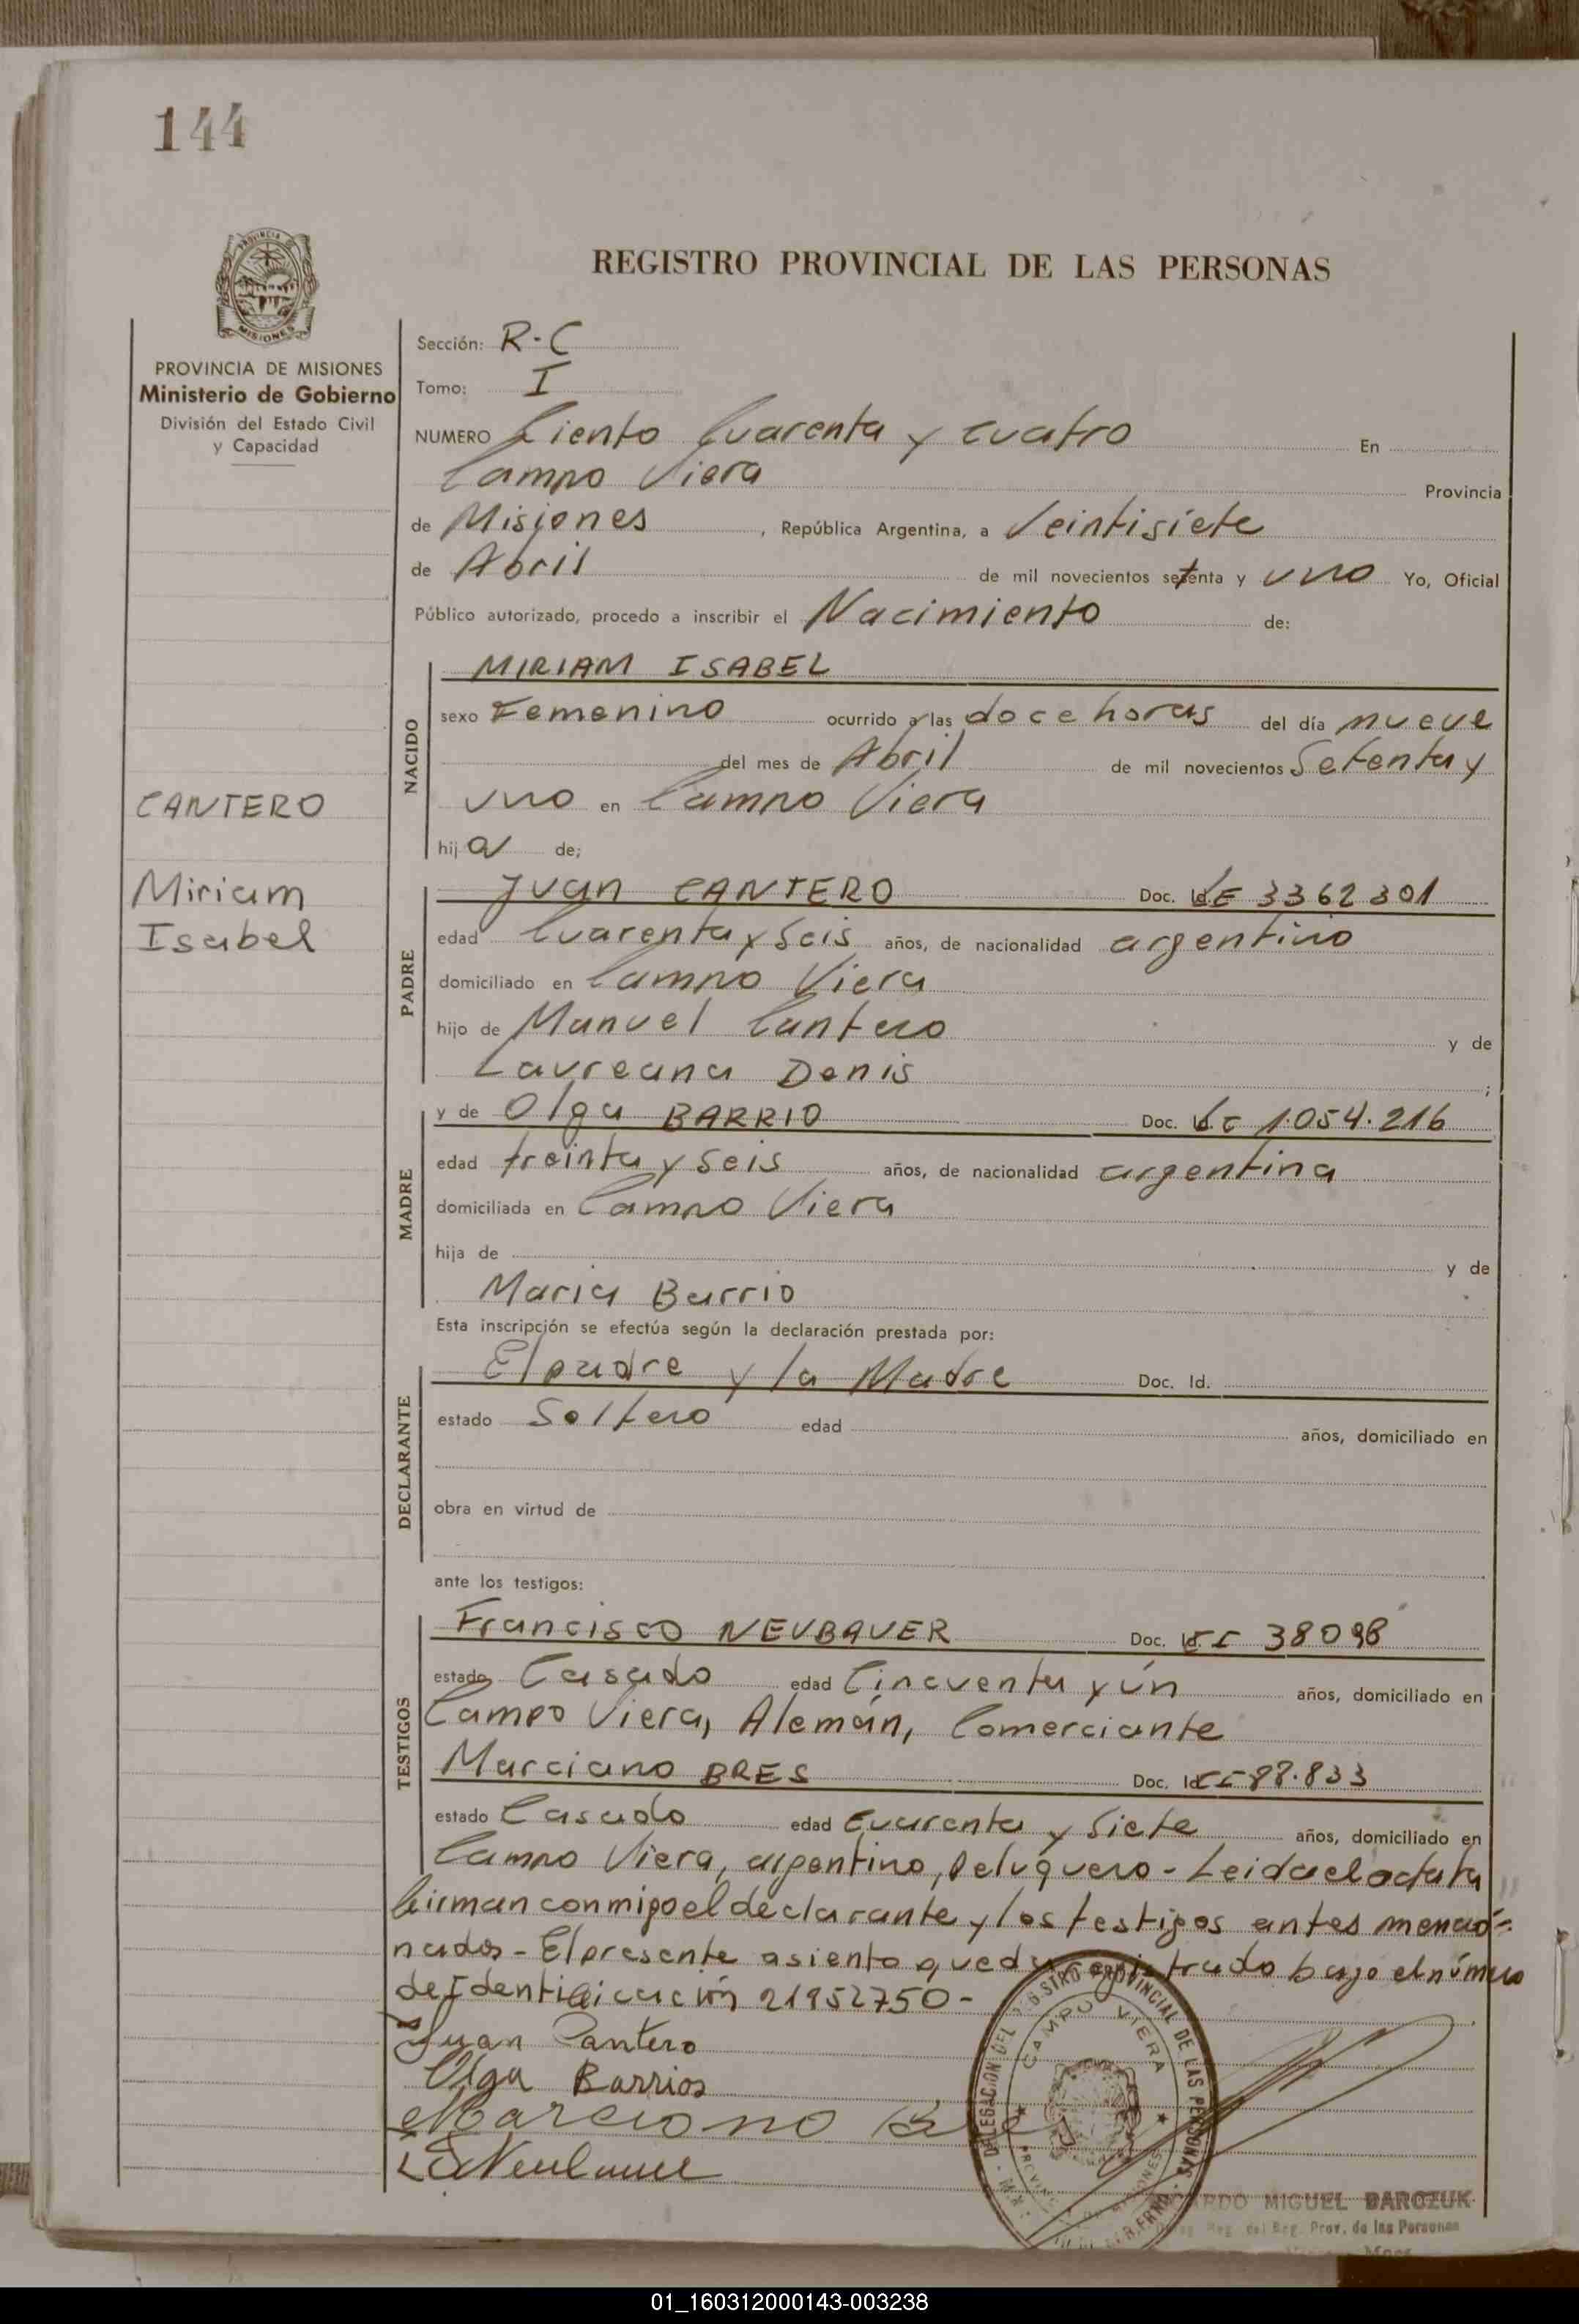 144
PROVINCIA DE
MISIONES
REGISTRO PROVINCIAL DE LAS PERSONAS
PROVINCIA DE MISIONES
Ministerio de Gobierno
División del Estado Civil
y Capacidad
CANTERO
Miriam
Isabel
Sección: R.C
Tomo: I
NUMERO Ciento Cuarenta y cuatro En
Campo Viera Provincia
de Misiones, República Argentina, a Veintisiete
de Abril de mil novecientos setenta y uno Yo, Oficial
Público autorizado, procedo a inscribir el Nacimiento de:
NACIDO
MIRIAM ISABEL
sexo Femenino ocurrido a las doce horas del día nueve
del mes de Abril de mil novecientos Setenta y
uno en Campo Viera
hija de;
PADRE
Juan CANTERO Doc. Id. LE 3362301
edad Cuarenta y Seis años, de nacionalidad argentino
domiciliado en Campo Viera
hijo de Manuel Cantero y de
Laureana Denis ;
MADRE
y de Olga BARRIO Doc. Id. 1.054.216
edad treinta y seis años, de nacionalidad argentina
domiciliada en Campo Viera
hija de y de
Maria Barrio
Esta inscripción se efectúa según la declaración prestada por:
DECLARANTE
El padre y la Madre Doc. Id.
estado Soltero edad años, domiciliado en
obra en virtud de
ante los testigos:
TESTIGOS
Francisco NEUBAUER Doc. Id. CI 38098
estado Casado edad Cincuenta y ún años, domiciliado en
Campo Viera, Alemán, Comerciante
Marciano BRES Doc. Id. CI 88.833
estado Casado edad Cuarenta y Siete años, domiciliado en
Campo Viera, argentino, Peluquero - Leida el acta la
firman conmigo el declarante y los testigos antes mencio=
nados - El presente asiento queda registrado bajo el número
de Identificación 21952750 -
Juan Cantero
Olga Barrios
Marciano Bres
Neubauer
DELEGACION DEL REGISTRO PROVINCIAL DE LAS PERSONAS
CAMPO VIERA
MIGUEL BAROZUK
Reg. del Reg. Prov. de las Personas
01_160312000143-003238